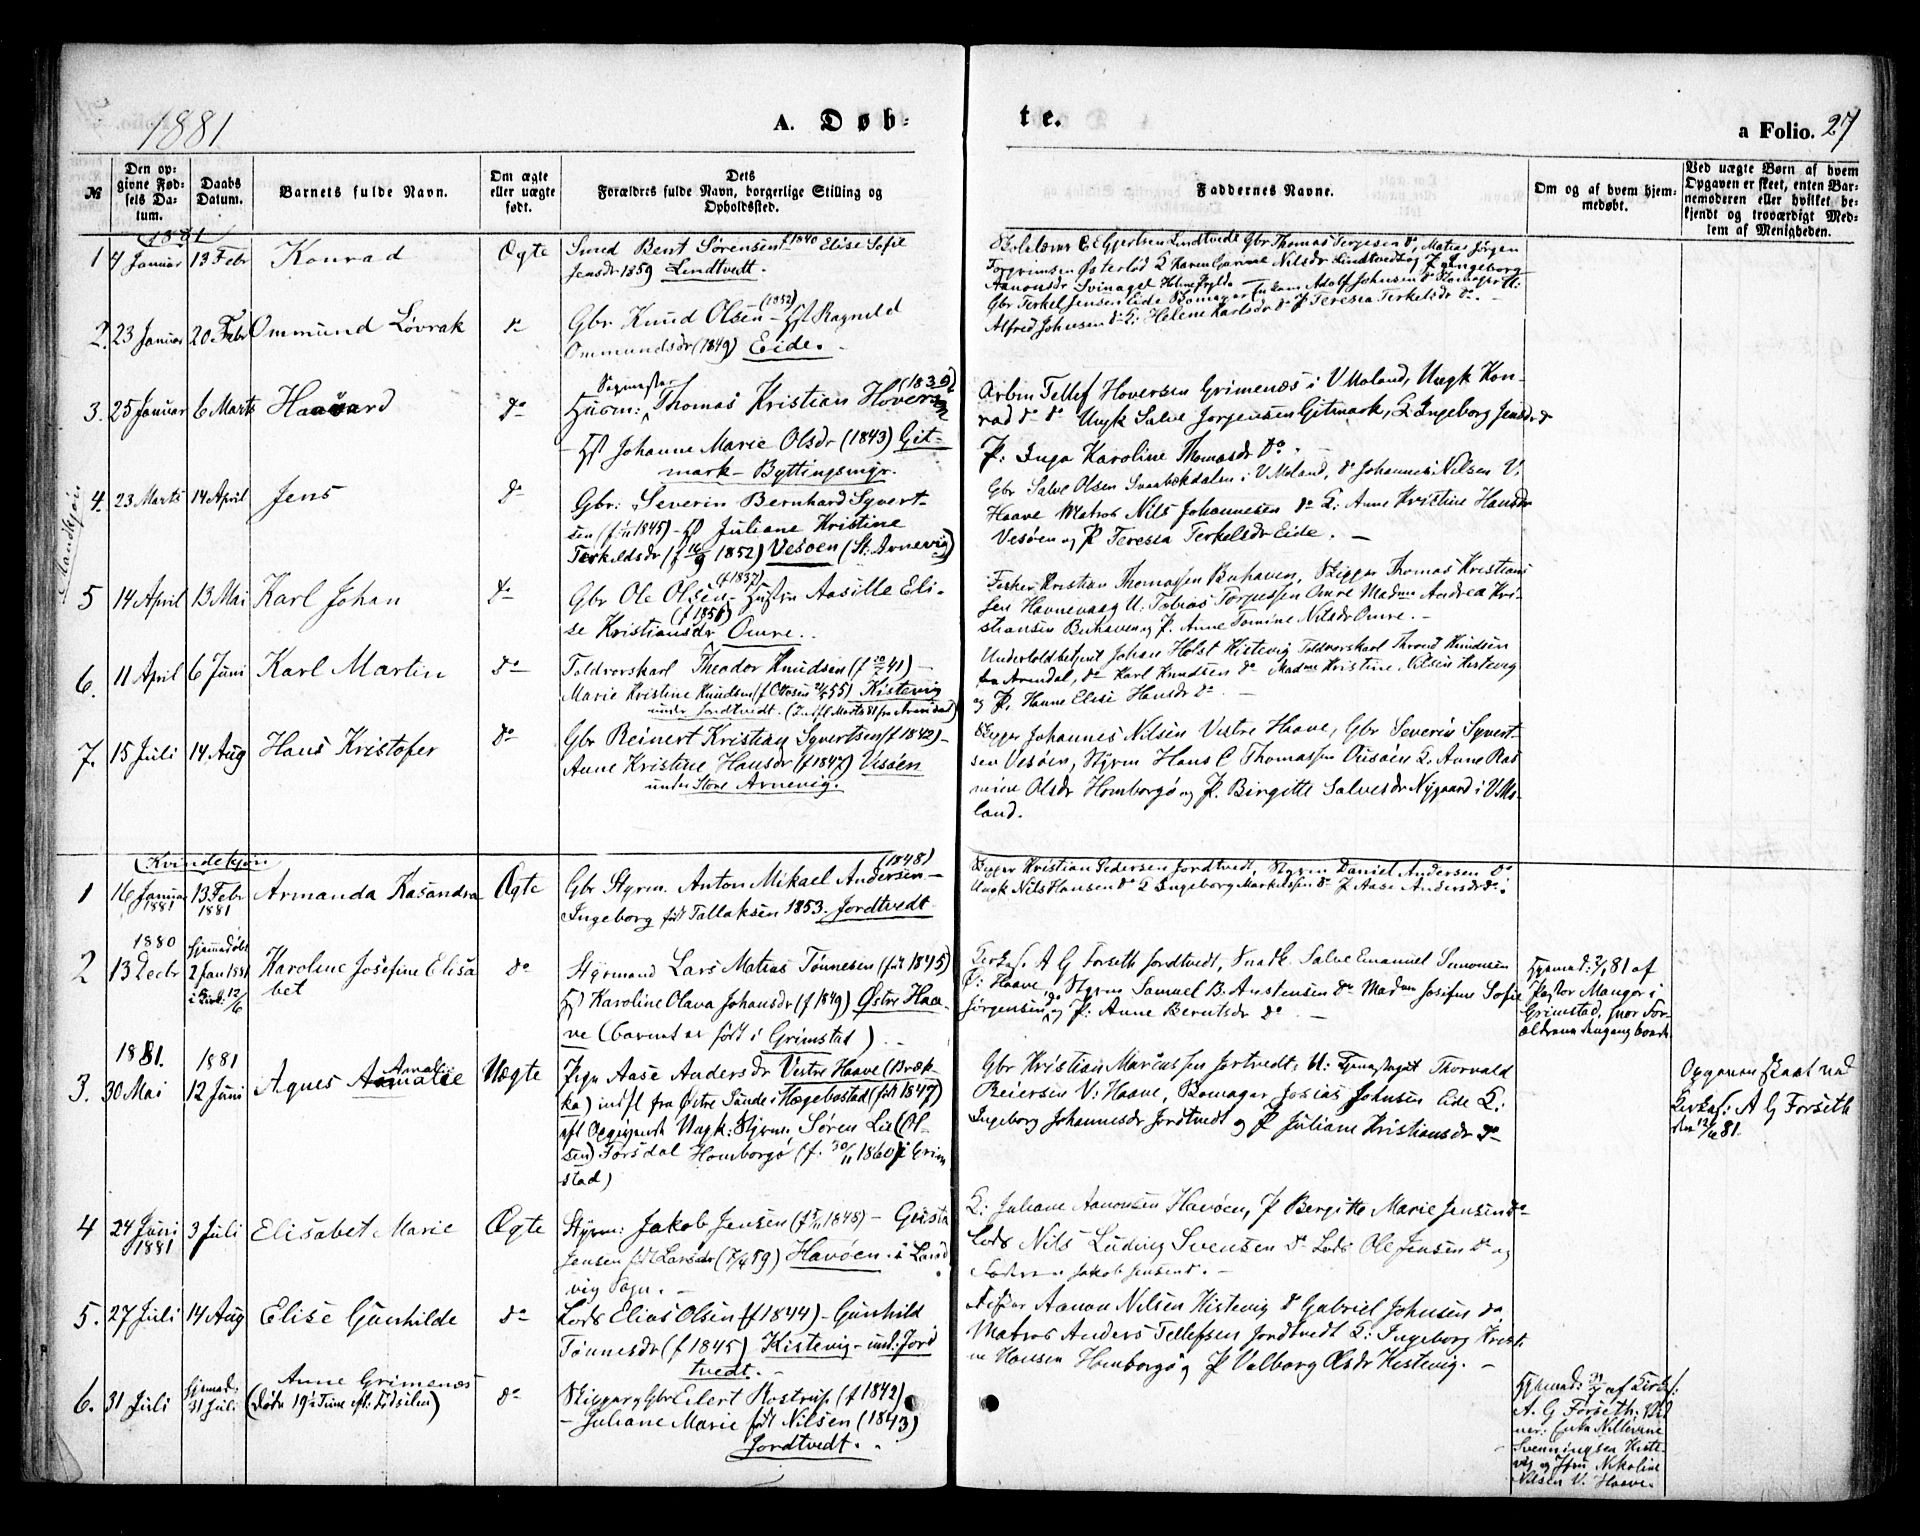 1881
A. Døb-
te.
a Folio. 27
№
Den opgivne Fødsels Datum.
Daabs Datum.
Barnets fulde Navn.
Om ægte eller uægte født.
Dets Forældres fulde Navn, borgerlige Stilling og Opholdssted.
Faddernes Navne.
Om og af hvem hjemmedøbt.
Ved uægte Børn af hvem Opgaven er skeet, enten Barnemoderen eller hvilket bekjendt og troværdigt Medlem af Menigheden.
Mandkjøn
1881
1 4 Januar 13 Febr Konrad Ægte Smed Bent Sørensen f 1840 Elise Sofie
Jensdr 1859 Lindtvett.
Skolelærer E Gjertsen Lindtvedt Gbr Thomas Terjesen do, Matias Jørgen
Torgrimsen Østerlod K Karen Nilsdr Lindtvedt og P Ingeborg
Aanonsdr Svinaget
2. 23 Januar 20 Febr Ommund Løvrak do Gbr. Knud Olsen (1852) – Hst Ragnild
Ommundsdr (1849) Eide.
Gbr Terkel Jensen Eide Bomager Adolf Johnsen do
Alfred Johnsen do K: Helene Karlsdr do P Teresia Terkelsdr do.
3. 25 Januar 6 Marts Haavard do Husm: Thomas Kristian Hoversen (1839)
– Hst Johanne Marie Olsdr (1843) Git-
mark – Byttingsmyr.
Arbm Tellef Hoversen Grimenæs i V Moland, Ungk Kon-
rad do do Ungk Salve Jørgensen Gitmark, K: Ingeborg Jensdr do
P: Inga Karoline Thomasdr do.
4. 23 Marts 14 April Jens do Gbr: Severin Bernhard Syvert-
sen (f 1845) – H Juliane Kristine
Terkeldsdr (f 16/9 1852) Vesøen (St: Arnevig)
Gbr Salve Olsen Svaabækdalen i V Moland, do Johannes Nilsen V.
Haave Matros Nils Johannesen do K: Anne Kristine Hansdr
Vesøen og P Teresia Terkelsdr Eide. –
5 14 April 13 Mai Karl Johan do Gbr Ole Olsen (f 1837) – Hustru Aasille Eli-
se Kristiansdr (f 1856) Omre.
Fisker Kristian Thomassen Buhaven, Skipper Thomas Kristian-
sen Havnevaag U: Tobias Torjussen Omre Madm Andrea Kri-
stiansen Buhaven og P. Anne Tomine Nilsdr Omre. –
6. 11 April 6 Juni Karl Martin do Toldvorskarl Theodor Knudsen (f 41) –
Marie Kristine Knudsen (f Olsen 55) Kistevig
under Jordtvedt. (Indfl Marts 81 fra Arendal)
Undertoldbetjent Johan Holst Kistevig Toldvorskarl Thrond Knudsen
fra Arendal, do Karl Knudsen do Madme Kristine Nilsen Kistevig
og P. Hanne Elise Hansdr do. –
7. 15 Juli 14 Aug Hans Kristofer do Gbr Reinert Kristian Syvertsen (f 1842) –
Anne Kristine Hansdr (f 1847) Vesøen
under Store Arnevig.
Skipper Johannes Nilsen Vestre Haave, Gbr Severin Syvert-
sen Vesøen, Styrm Hans C Thomassen Ousøen K. Anne Ras
mine Olsdr Homborgø og P. Birgitte Salvesdr Nygaard i V. Mo-
land.
Kvindekjøn
1 16 Januar 1881 13 Febr 1881 Armanda Kasandra Ægte Gbr Styrm. Anton Mikael Andersen (1848) –
Ingeborg født Tallaksen 1853. Jordtvedt.
Skipper Kristian Pedersen Jordtvedt, Styrm Daniel Andersen do
Ungk Nils Hansen do K Ingeborg Markussen do P Aase Andersdr do.
2 1880 13 Decbr Hjemmedøbt 2 Jan 1881 i Kirk: 12/6 Karoline Josefine Elisa
bet do Styrmand Lars Matias Tønnesen (født 1845)
Hst Karoline Olava Johansdr (f 1849) Østre Haa-
ve (barnet er født i Grimstad). –
Kirkes. A G Forseth Jordtvedt, Snedk. Salve Emanuel Simonsen
Ø: Haave, Styrm Samuel B. Austensen do Madam Josefine Sofie
Jørgensen do og P: Anne Berntsdr do. –
Hjemmed: 2/1 81 af
Pastor Manger i
Grimstad, hvor For-
ældrene dengang boede
3. 1881. 30 Mai 1881 12 Juni Agnes Amalie Uægte Pige Aase Andersdr Vestre Haave (Bræk-
ka) indfl fra Østre Sande i Hægebostad (født 1847)
efl Opgivende Ungk: Styrm: Søren Lie (Ol-
sen) Forsdal Homborgø (f. 30/11 1860 i Grim
stad)
Gbr Kristian Marcussen Jortvedt, U: Thorvald
Reiersen V: Haave, Bomager Josias Johnsen Eide K:
Ingeborg Johannesdr Jordtvedt og P Juliane Kristiansdr do
Opgaven skeet ved
Kirkes: A G Forseth
den 12/6 81.
4 24 Juni 1881 3 Juli Elisabet Marie Ægte Styrm: Jakob Jensen (f 5/11 1848) – Gusta
Jensen født Larsdr (7/4 59) Havøen i Land
vig Sogn. –
K: Juliane Aanonsen Havøen, P Bergitte Marie Jensen do
Lods Nils Ludvig Svensen do Lods Ole Jensen do og
Faderen Jakob Jensen d. –
5. 27 Juli 14 Aug Elise Gunhilde do Lods Elias Olsen (f 1844) – Gunhild
Tønnesdr (f 1845) Kistevig – und: Jord
tvedt. –
Fisker Aanon Nilsen Kistevig do Gabriel Johnsen do
Matros Anders Tellefsen Jordtvedt K: Ingeborg Krist-
ne Hansen Homborgø og P Valborg Olsdr Kistevig. –
6. 31 Juli Hjemmed: 31 Juli Anne Grimenæs
(døde 19½ Time eft: Fødselen) do Skipper og Gbr Eilert Rostrup (f 1842)
– Juliane Marie født Nilsen (1843)
Jordtvedt.
Hjemmed: 31/7 af Kirkes:
A. G Forseth. Vid
ner: Enke Nilsine
Svenningsen Kiste-
vig og Nikoline
Nilsen V. Haave.